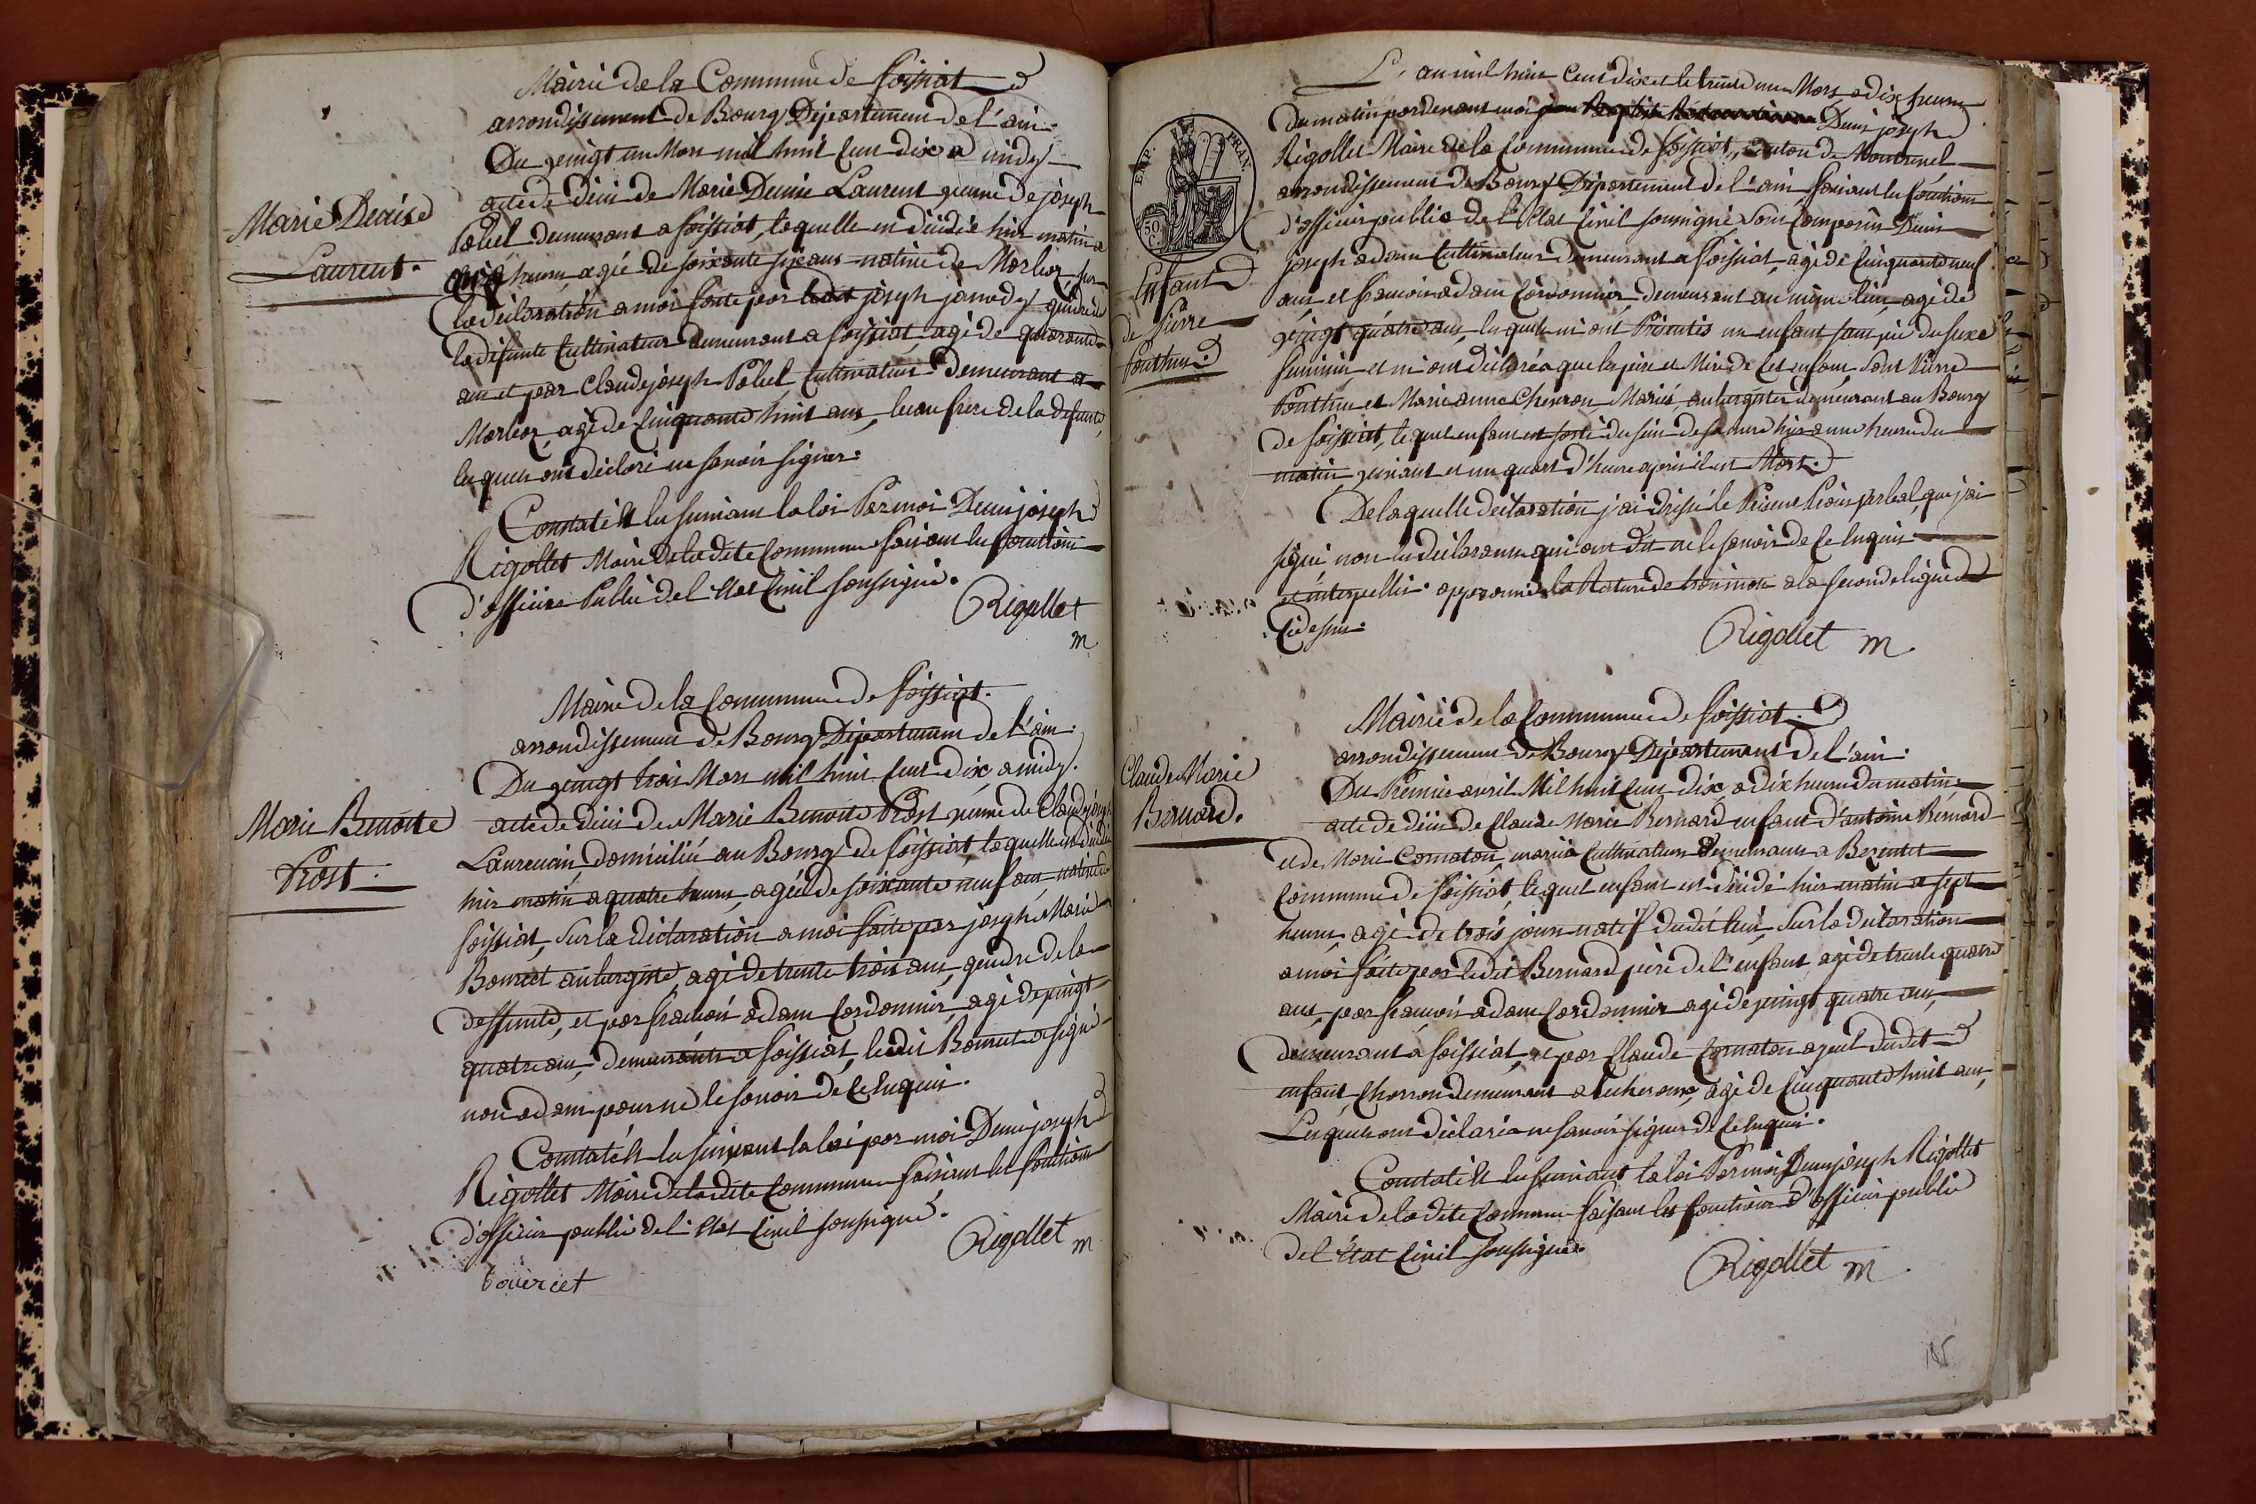 Mairie de la Commune de foissiat
arrondissement de Bourg Département de l'ain.
Du vingt un Mars mil huit Cent dix a midy
acte de décès de Marie Denise Laurent veuve de joseph
Pobel demeurant a foissiat, laquelle est décédée hier matin a
heures, agée de soixante six ans native de Marboz sur
la déclaration a moi faite par ledit joseph jamody gendre de
la défunte Cultivateur demeurant a foissiat agé de quarante
ans et par Claude joseph Pobel Cultivateur demeurant a
Marboz agé de Cinquante huit ans, beau frere de la defunte,
lesquels ont déclaré ne savoir signer.
Constaté et lu suivant la loi Par moi Denis joseph
Rigollet Maire de ladite Commune faisant les fonctions
d'officier Public de l'Etat Civil soussigné.
Rigollet
m
Marie Denise
Laurent.
Mairie de la Commune de foissiat.
arrondissement de Bourg Département de l'ain.
Du vingt trois Mars mil huit Cent dix a midy.
acte de décès de Marie Benoite Prost veuve de Claude joseph
Laurencin, domiciliée au Bourg de foissiat, laquelle est décédée
hier matin a quatre heures, agée de soixante neuf ans native de
foissiat, sur la déclaration a moi faite par joseph Marie
Bouvret aubergiste, agé de trente trois ans, gendre de la
deffunte, et par francois adam Cordonnier, agé de vingt
quatre ans, demeurants a foissiat, ledit Bouvret a signé
non adam pour ne le savoir de Ce Enquis.
Constaté et lu suivant la loi par moi Denis joseph
Rigollet Maire de ladite Commune faisant les fonctions
d'officier public de l'Etat Civil soussigné.
Rigollet m
bouvret
Marie Benoite
Prost.
L'an mil huit Cent dix et le trente un Mars a dix heures
du matin pardevant moi Denis joseph
Rigollet Maire de la Commune de foissiat, canton de Montrevel
arrondissement de Bourg Département de l'ain faisant les fonctions
d'officier public de l'Etat Civil soussigné, sont Comparus Denis
joseph adam Cultivateur demeurant a foissiat, agé de Cinquante neuf
ans et francois adam Cordonnier, demeurant au même lieu agé de
vingt quatre ans, lesquels m'ont Présentés un enfant sans vie du sexe
feminin, et m'ont déclaré que les père et Mère de Cet enfant sont Pierre
Ponthus et Marie anne Cherron, Mariés, aubergistes demeurant au Bourg
de foissiat, lequel enfant est sorti du sein de sa mère hier a une heure du
matin vivant et un quart d'heure après il est Mort.
De laquelle déclaration j'ai dressé le Présent Procès verbal, que j'ai
signé non les déclarants qui ont dit ne le savoir de Ce Enquis
et interpellés. approuvé la Rature de trois mots a la seconde ligne
Ci dessus.
Rigollet m.
EMP. FRAN.
50 C.
Enfant
de Pierre
Ponthus.
Mairie de la Commune de foissiat.
arrondissement de Bourg Département de l'ain.
Du Premier avril Mil huit Cent dix, a dix heures du matin
acte de décès de Claude Marie Bernard enfant d'antoine Bernard
et de Marie Cornaton, mariés Cultivateurs demeurants a Bezentet
Commune de foissiat, lequel enfant est décédé hier matin a sept
heures, agé de trois jours natif dudit lieu, sur la déclaration
a moi faite par ledit Bernard père de l'enfant, agé de trente quatre
ans, par francois adam Cordonnier agé de vingt quatre ans,
demeurant a foissiat, et par Claude Cornaton ayeul dudit
enfant, Charron demeurant a agé de Cinquante huit ans,
Lesquels ont déclaré ne savoir signer de Ce Enquis.
Constaté et lu suivant la loi Par moi Denis joseph Rigollet
Maire de ladite Commune faisant les fonctions d'officier public
de l'Etat Civil soussigné.
Rigollet m.
Claude Marie
Bernard.